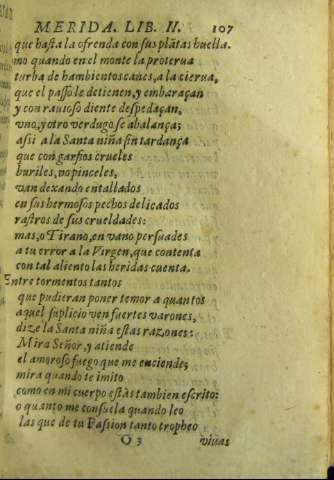 MERIDA. LIB. II. 107
que hasta la ofrenda con sus plãtas huella.
mo quando en el monte la proterua
turba de hambientos canes, a la cierua,
que el passo le detienen, y embaraçan
y con rauioso diente despedaçan,
vno, y otro verdugo se abalança;
assi a la Santa niña sin tardança
que con garfios crueles
buriles, no pinceles,
van dexando entallados
en sus hermosos pechos delicados
rastros de sus crueldades:
mas, o Tirano, en vano persuades
a tu error a la Virgen, que contenta
con tal aliento las heridas cuenta.
Entre tormentos tantos
que pudieran poner temor a quantos
aquel suplicio ven fuertes varones,
dize la Santa niña estas razones:
Mira Señor, y atiende
el amoroso fuego que me enciende;
mira quando te imito
como en mi cuerpo estàs tambien escrito:
o quanto me consuela quando leo
las que de tu Passion tanto tropheo
O 3 viuas